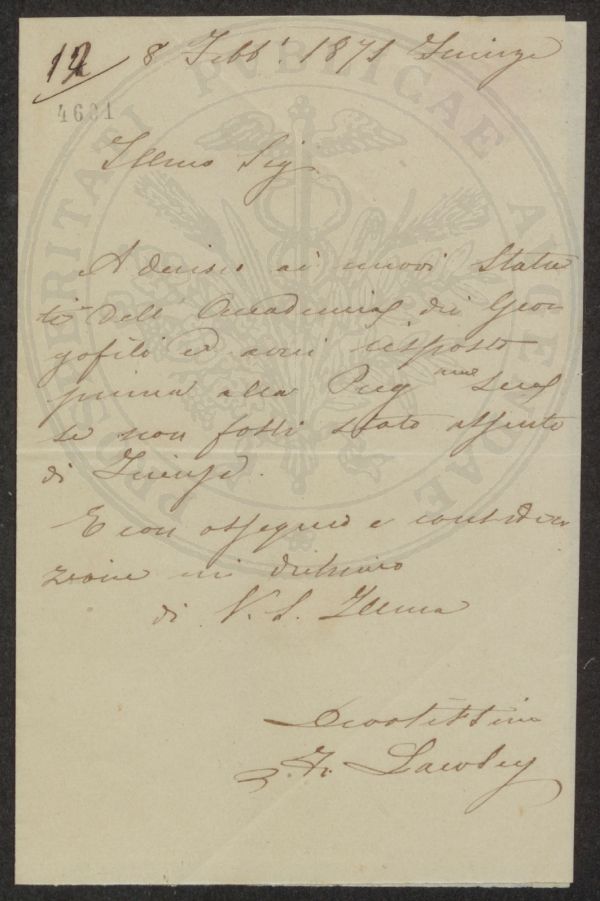 12
8 Febb. 1871 Firenze
4601
Illmo Sig
Aderisco ai nuovi Statu
ti dell' Accademia dei Geor
gofili ed avrei risposto
prima alla Preg.ma Sua
se non fossi stato assente
di Firenze.
E con ossequio e considera
zione mi dichiaro
di V. S. Illma
Devotissimo
F. Lawley
PROSPERITATI PVBLICAE AVGENDAE